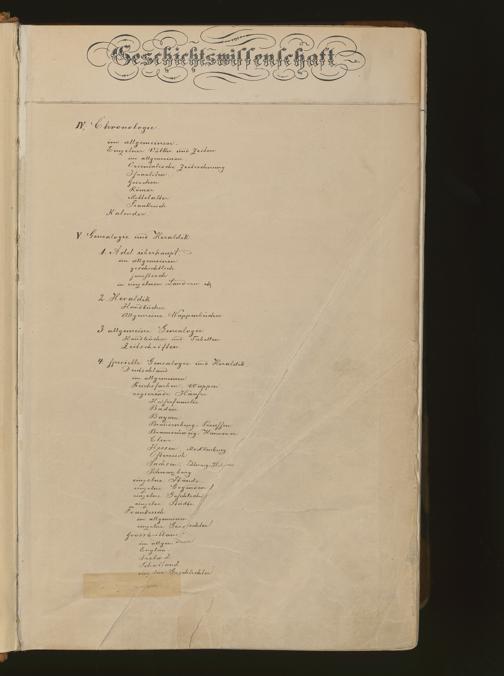 Geschichtswissenschaft
IV. Chronologie
im allgemeinen
Einzelne Völker und Zeiten
im allgemeinen
Orientalische Zeitrechnung
Israeliten
Griechen
Römer
Mittelalter
Frankreich
Kalender
V Genealogie und Heraldik
1. Adel überhaupt
im allgemeinen
geschichtlich
juristisch
in einzelnen Ländern
2. Heraldik
Handbücher
Allgemeine Wappenbücher
3. allgemeine Genealogie
Handbücher und Tabellen
Zeitschriften
4. specielle Genealogie und Heraldik
Deutschland
im allgemeinen
Wappen
regierende Häuser
Baden
Bayern
Brandenburg-Preussen
Braunschweig-Hannover
Cleve
Hessen Mecklenburg
Österreich
Sachsen
Schwarzburg
einzelne Stände
einzelne
einzelne Geschlechter
einzelne Städte
Frankreich
im allgemeinen
einzelne Geschlechter
Grossbritannien
im allgemeinen
England
Irland
Schottland
einzelne Geschlechter